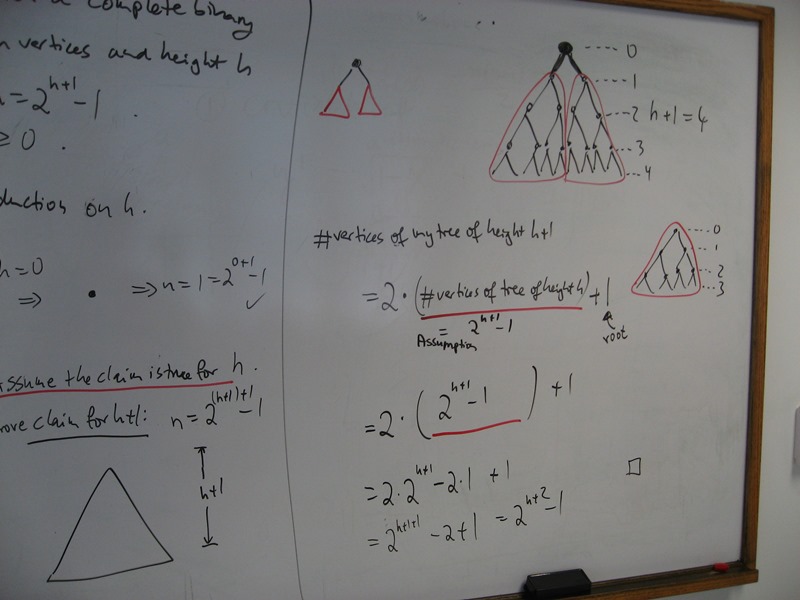 a complete binary
vertices and height h
= 2^(h+1) - 1 .
≥ 0 .
on h.
h = 0
⇒ • ⇒ n = 1 = 2^(0+1) - 1 ✓
Assume the claim is true for h.
prove claim for h+1: n = 2^((h+1)+1) - 1
h+1
0
1
2 h+1 = 4
3
4
# vertices of my tree of height h+1
= 2 · (# vertices of tree of height h) + 1
= 2^(h+1) - 1
Assumption
root
0
1
2
3
= 2 · ( 2^(h+1) - 1 ) + 1
= 2 · 2^(h+1) - 2 · 1 + 1
= 2^(h+1+1) - 2 + 1 = 2^(h+2) - 1
□